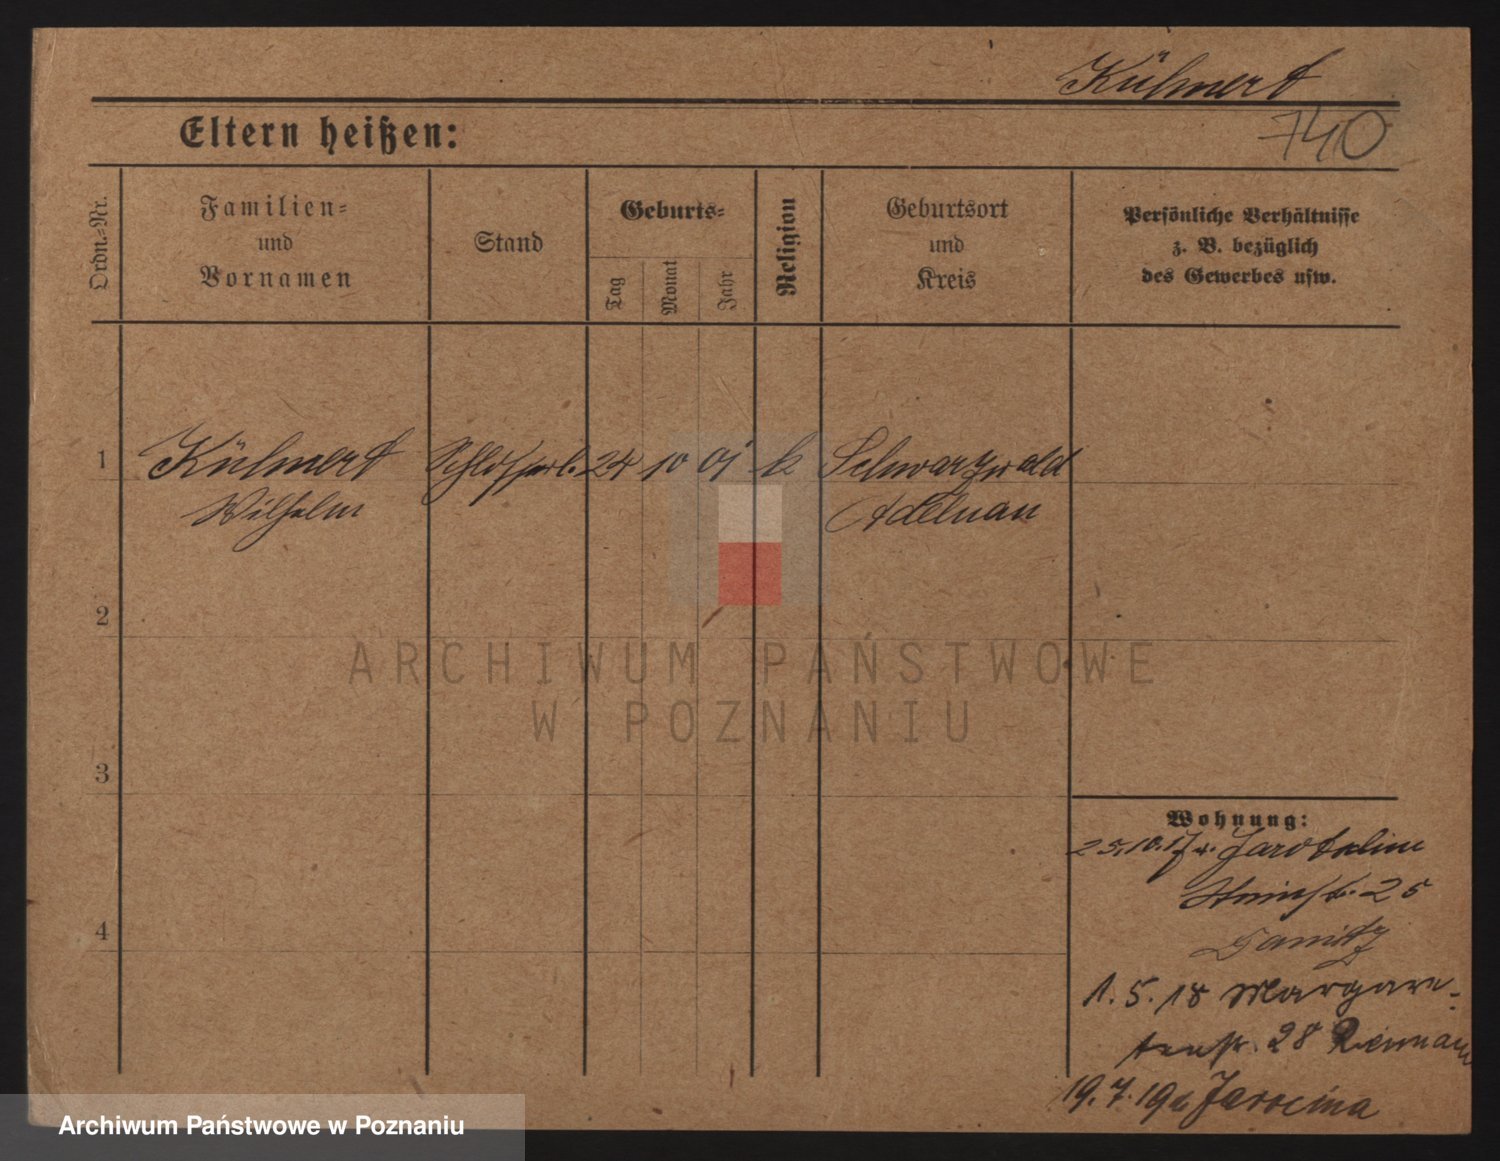 Kühnert
740
Eltern heißen:
Ordn.-Nr.
Familien- und Vornamen
Stand
Geburts-
Tag
Monat
Jahr
Religion
Geburtsort und Kreis
Persönliche Verhältnisse
z. B. bezüglich
des Gewerbes usw.
1 Kühnert 24 10 01 k Schwarzwald
Wilhelm Adelnau
2
3
4
ARCHIWUM PAŃSTWOWE
W POZNANIU
Wohnung:
25.10.17
25
1.5.18 Margare-
28
19.7.19 Jarocina
Archiwum Państwowe w Poznaniu